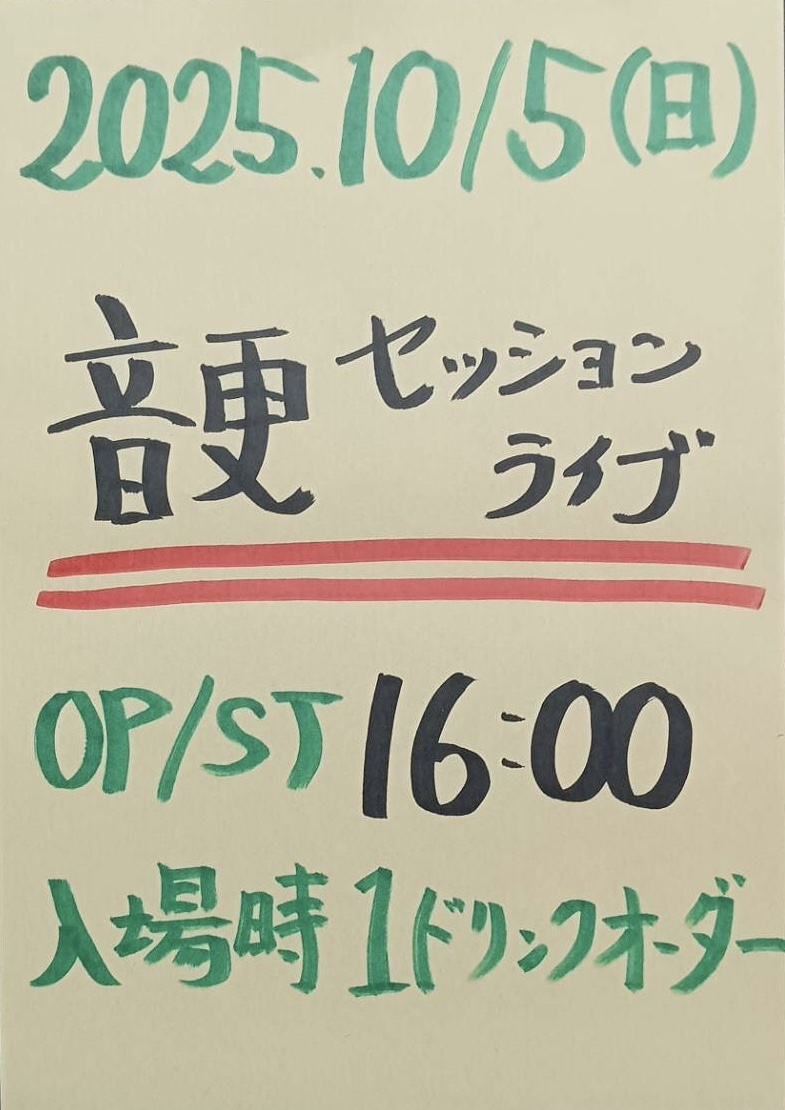 2025.10/5(日)
音更 セッション
ライブ
OP/ST 16:00
入場時1ドリンクオーダー